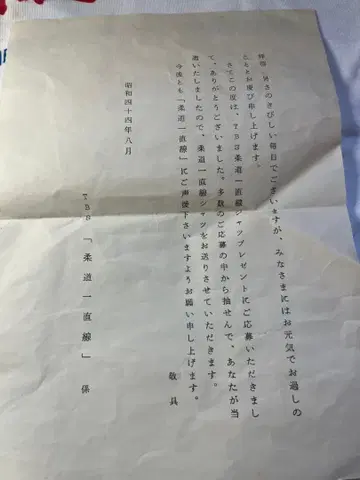 拝啓 暑さのきびしい毎日でございますが、みなさまにはお元気でお過しの
こととお慶び申し上げます。
さてこの度は、TBS柔道一直線シャツプレゼントにご応募いただきまし
て、ありがとうございました。多数のご応募の中から抽せんで、あなたが当
選いたしましたので、柔道一直線シャツをお送りさせていただきます。
今後とも「柔道一直線」にご声援下さいますようお願い申し上げます。
敬具
昭和四十四年八月
TBS「柔道一直線」係